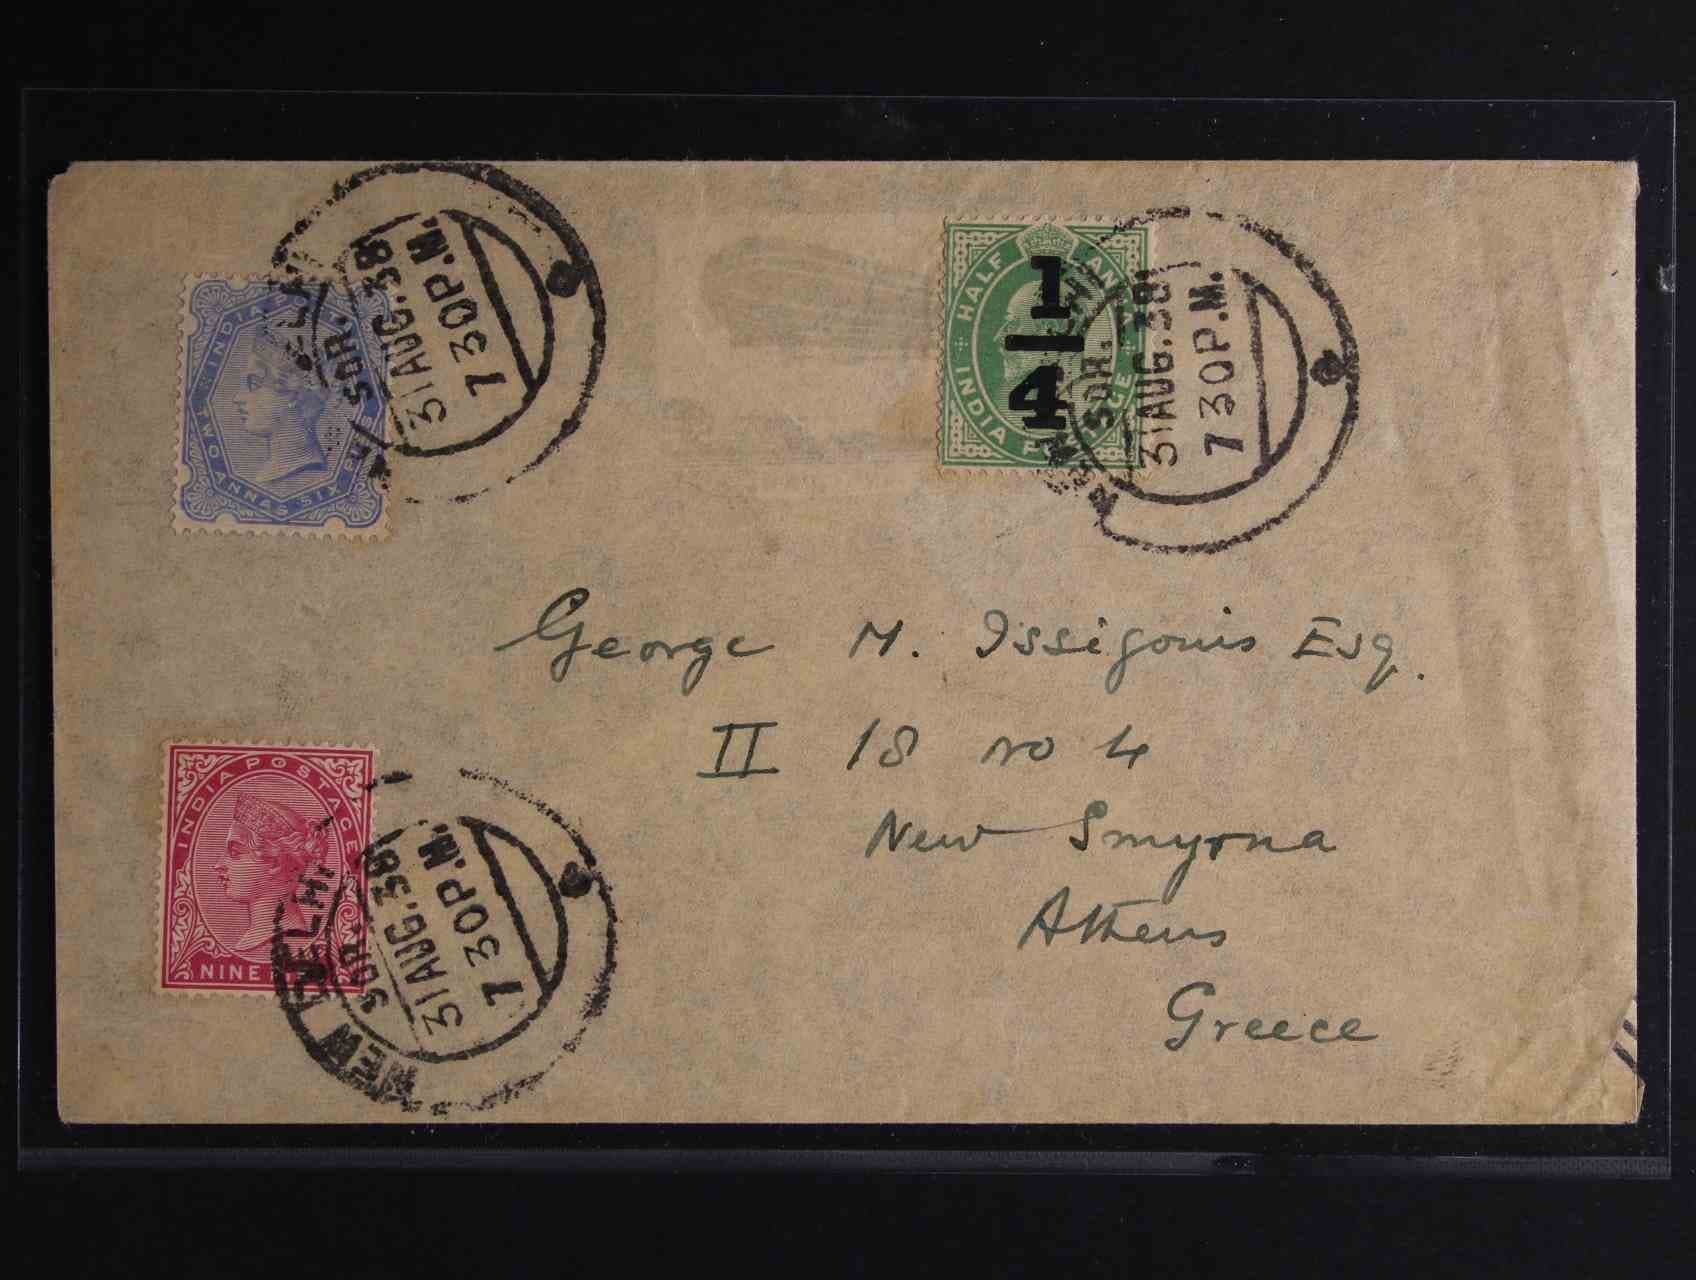 INDIA
TWO ANNAS SIX P
SOR.
31AUG.38.
7 30P.M.
HALF ANNA
INDIA POSTAGE
1
4
SOR.
31AUG.38.
7 30P.M.
George M. Issigonis Esq.
II 18 no 4
New Smyrna
Athens
Greece
INDIA POSTAGE
NINE
NEW DELHI
SOR.
31AUG.38.
7 30P.M.